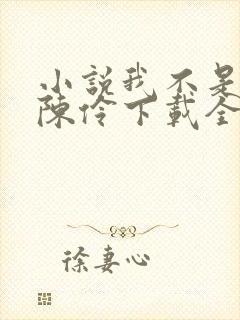 小說我不是
陳伶下載全
徐妻心